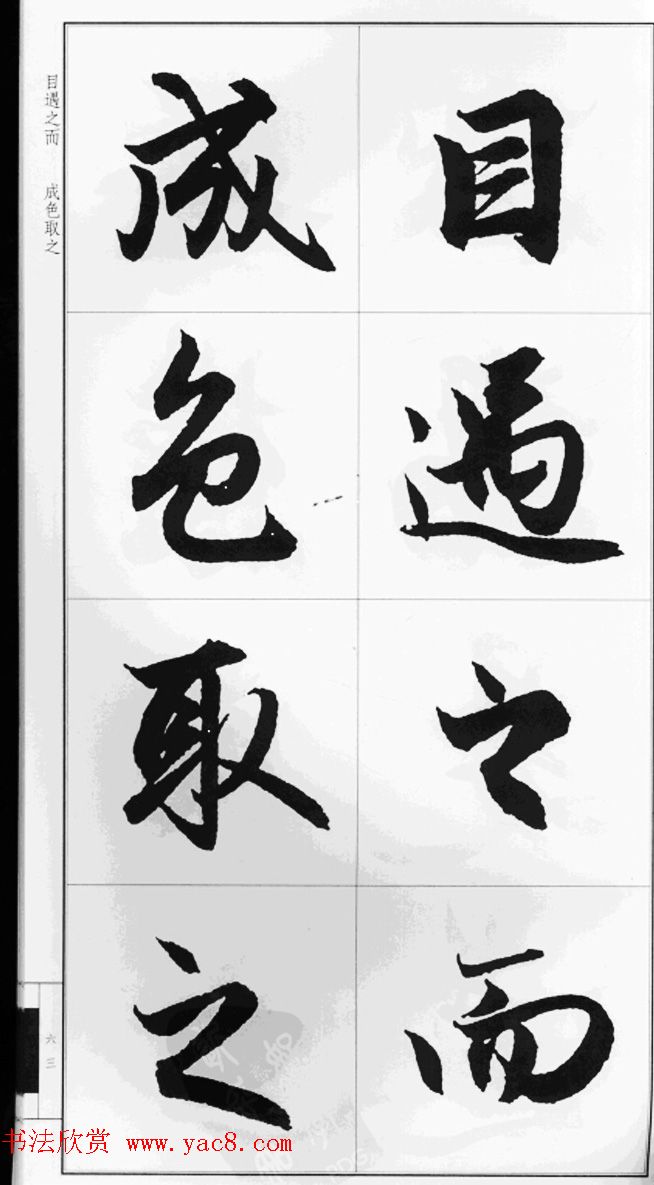 目遇之而
成色取之
目遇之而 成色取之
六三
书法欣赏 www.yac8.com